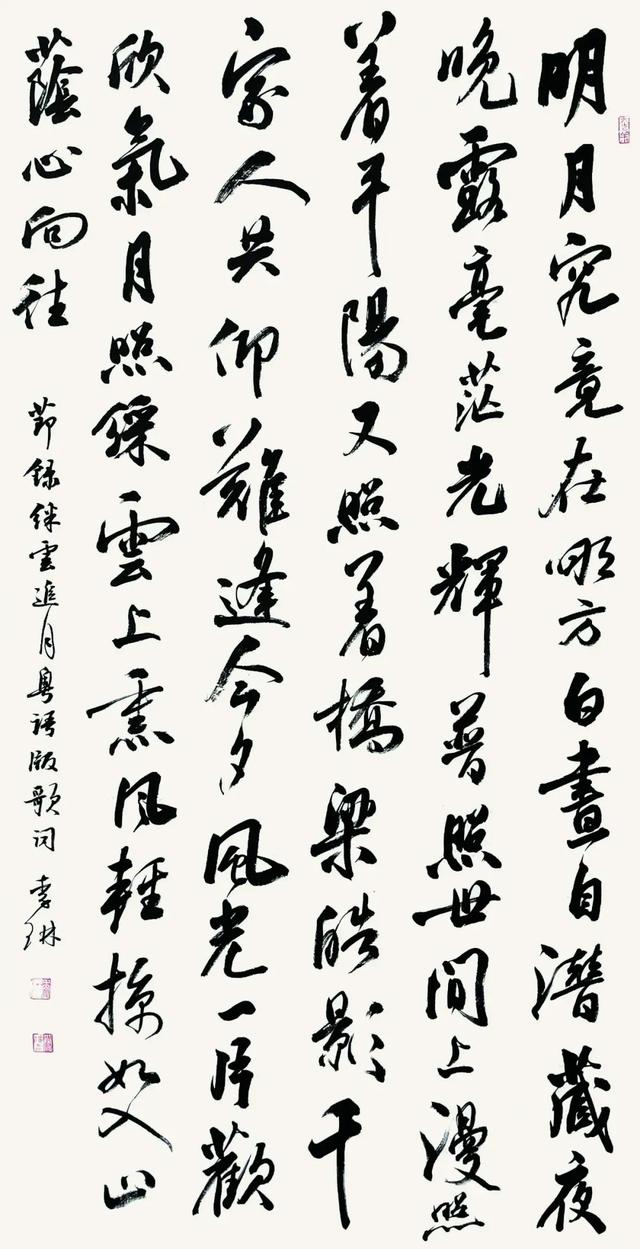 明月究竟在哪方白晝自潛藏夜
晚露毫茫光輝普照世間上漫照
着平陽又照着橋梁皓影千
家人共仰難逢今夕風光一片歡
欣氣月照綵雲上熏風輕掠如入山
蔭心向往
節録綵雲追月粵語版歌词 李琳